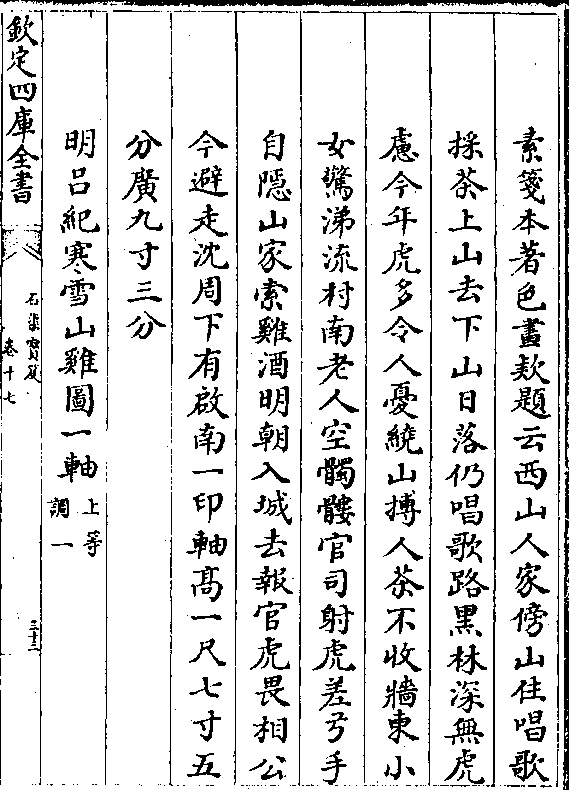 素箋本著色畫欵題云西山人家傍山住唱歌
採茶上山去下山日落仍唱歌路黒林深無虎
慮今年虎多令人憂繞山搏人茶不收牆東小
女驚涕流村南老人空髑髏官司射虎差弓手
自隠山家索雞酒明朝入城去報官虎畏相公
今避走沈周下有啟南一印軸髙一尺七寸五
分廣九寸三分
明吕紀寒雪山雞圖一軸 上等
調一
欽定四庫全書
石渠寳笈
卷十七
三十三